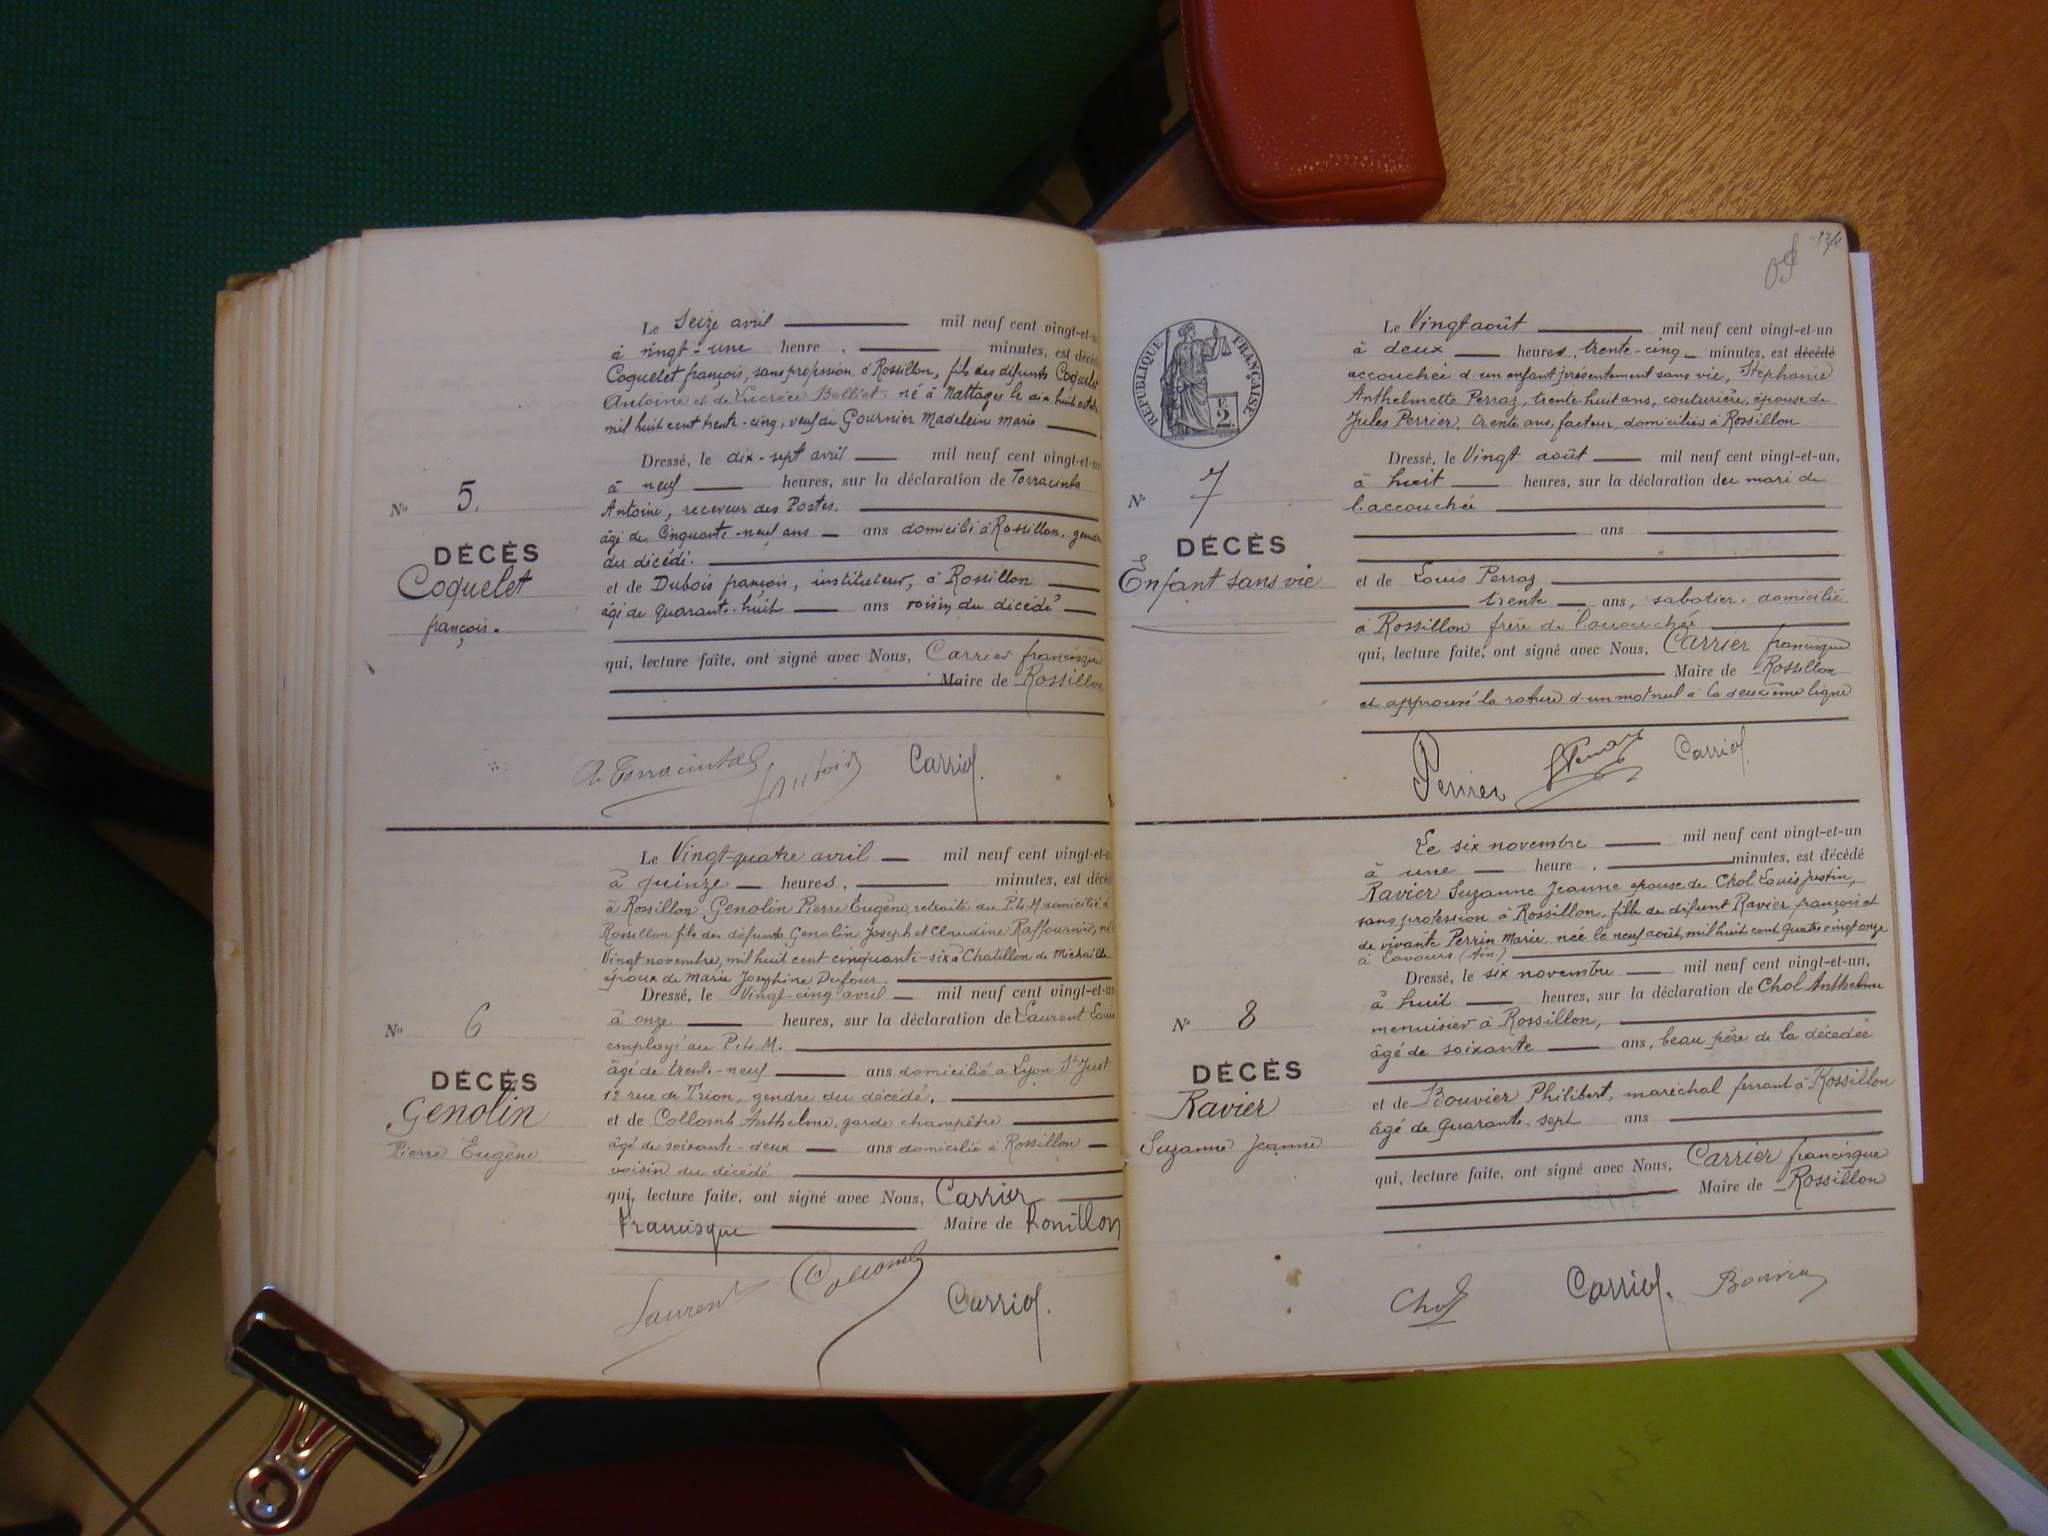 Le Seize avril mil neuf cent vingt-et-un
à vingt-une heure, minutes, est décédé
Coquelet françois, sans profession à Rossillon, fils des défunts Coquelet
Antoine et de Lucrèce Bolliet, né à Nattages le dix huit
mil huit cent trente-cinq, veuf de Gournier Madelein marie
Dressé, le dix-sept avril mil neuf cent vingt-et-un
à neuf heures, sur la déclaration de Torracinta
Antoine, receveur des Postes.
âgé de Cinquante-neuf ans ans domicilié à Rossillon, gendre
du décédé.
et de Dubois françois, instituteur, à Rossillon
âgé de quarante-huit ans voisin du décédé
qui, lecture faite, ont signé avec Nous, Carrier francisque
Maire de Rossillon
No 5.
DÉCÈS
Coquelet
françois.
A. Torracinta Carrier.
Le Vingt-quatre avril mil neuf cent vingt-et-un
à quinze heures, minutes, est décédé
à Rossillon Genolin Pierre Eugène, retraité du P.L.M. domicilié à
Rossillon fils des défunts Genolin Joseph et Claudine Raffournier, né
Vingt novembre, mil huit cent cinquante-six à Chatillon de Michaille
époux de Marie Josephine Dufour.
Dressé, le Vingt-cinq avril mil neuf cent vingt-et-un
à onze heures, sur la déclaration de Laurent Louis
employé au P.L.M.
âgé de trente-neuf ans domicilié à Lyon St Just
12 rue de Trion, gendre du décédé.
et de Collomb Anthelme, garde champêtre
âgé de soixante-deux ans domicilié à Rossillon
voisin du décédé
qui, lecture faite, ont signé avec Nous, Carrier
Francisque Maire de Rossillon
No 6
DÉCÈS
Genolin
Pierre Eugène
Laurent Collomb Carrier.
RÉPUBLIQUE FRANÇAISE
2
Le Vingt août mil neuf cent vingt-et-un
à deux heures, trente-cinq minutes, est décédé
accouchée d'un enfant présentement sans vie, Stéphanie
Anthelmette Perraz, trente-huit ans, couturière, épouse de
Jules Perrier, trente ans, facteur, domiciliés à Rossillon
Dressé, le Vingt août mil neuf cent vingt-et-un,
à huit heures, sur la déclaration du mari de
l'accouchée
ans
et de Louis Perraz
trente ans, sabotier, domicilié
à Rossillon frère de l'accouchée
qui, lecture faite, ont signé avec Nous, Carrier francisque
Maire de Rossillon
et approuvé la rature d'un mot nul à la deuxième ligne
No 7
DÉCÈS
Enfant sans vie
Perrier Carrier.
Le six novembre mil neuf cent vingt-et-un
à une heure, minutes, est décédé
Ravier Suzanne Jeanne épouse de Chol Louis Justin,
sans profession à Rossillon, fille de défunt Ravier françois et
de vivante Perrin Marie, née le neuf août, mil huit cent quatre vingt onze
à Lavours (Ain)
Dressé, le six novembre mil neuf cent vingt-et-un,
à huit heures, sur la déclaration de Chol Anthelme
menuisier à Rossillon,
âgé de soixante ans, beau père de la décédée
et de Bouvier Philibert, maréchal ferrant à Rossillon
âgé de quarante-sept ans
qui, lecture faite, ont signé avec Nous, Carrier francisque
Maire de Rossillon
No 8
DÉCÈS
Ravier
Suzanne Jeanne
Chol Carrier. Bouvier